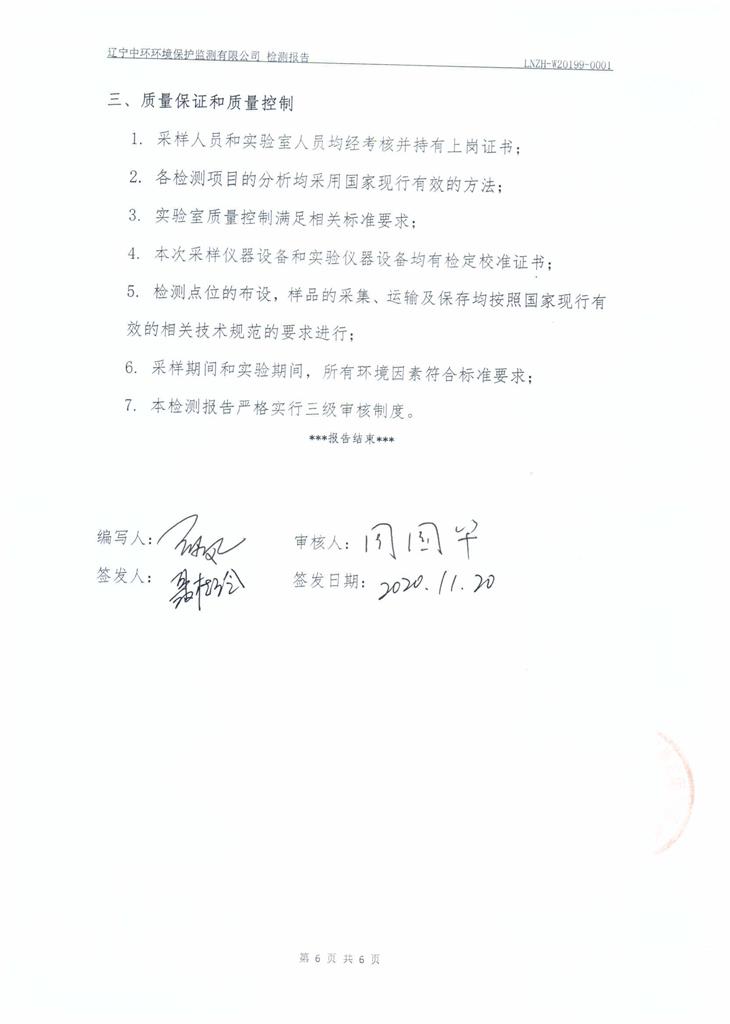 辽宁中环环境保护监测有限公司 检测报告 LNZH-W20199-0001
三、质量保证和质量控制
1. 采样人员和实验室人员均经考核并持有上岗证书；
2. 各检测项目的分析均采用国家现行有效的方法；
3. 实验室质量控制满足相关标准要求；
4. 本次采样仪器设备和实验仪器设备均有检定校准证书；
5. 检测点位的布设，样品的采集、运输及保存均按照国家现行有
效的相关技术规范的要求进行；
6. 采样期间和实验期间，所有环境因素符合标准要求；
7. 本检测报告严格实行三级审核制度。
***报告结束***
编写人： 审核人：
签发人： 签发日期：2020.11.20
第 6 页 共 6 页